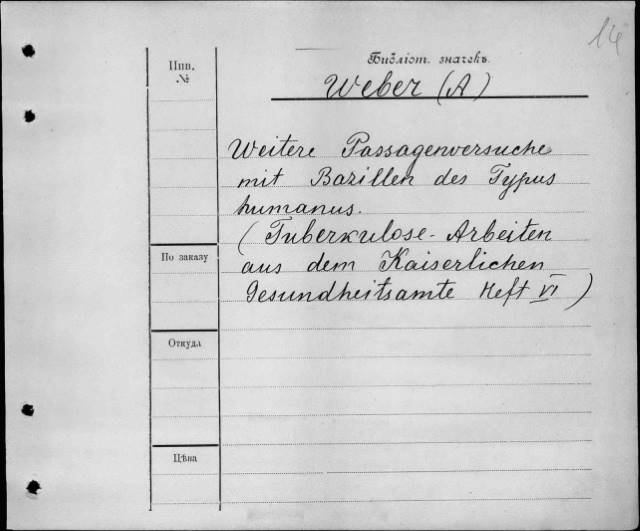 14
Библіот. значекъ.
Инв.
№
Weber (A)
Weitere Passagenversuche
mit Bazillen des Typus
humanus.
(Tuberkulose-Arbeiten
По заказу
aus dem Kaiserlichen
Gesundheitsamte Heft VI)
Откуда
Цѣна